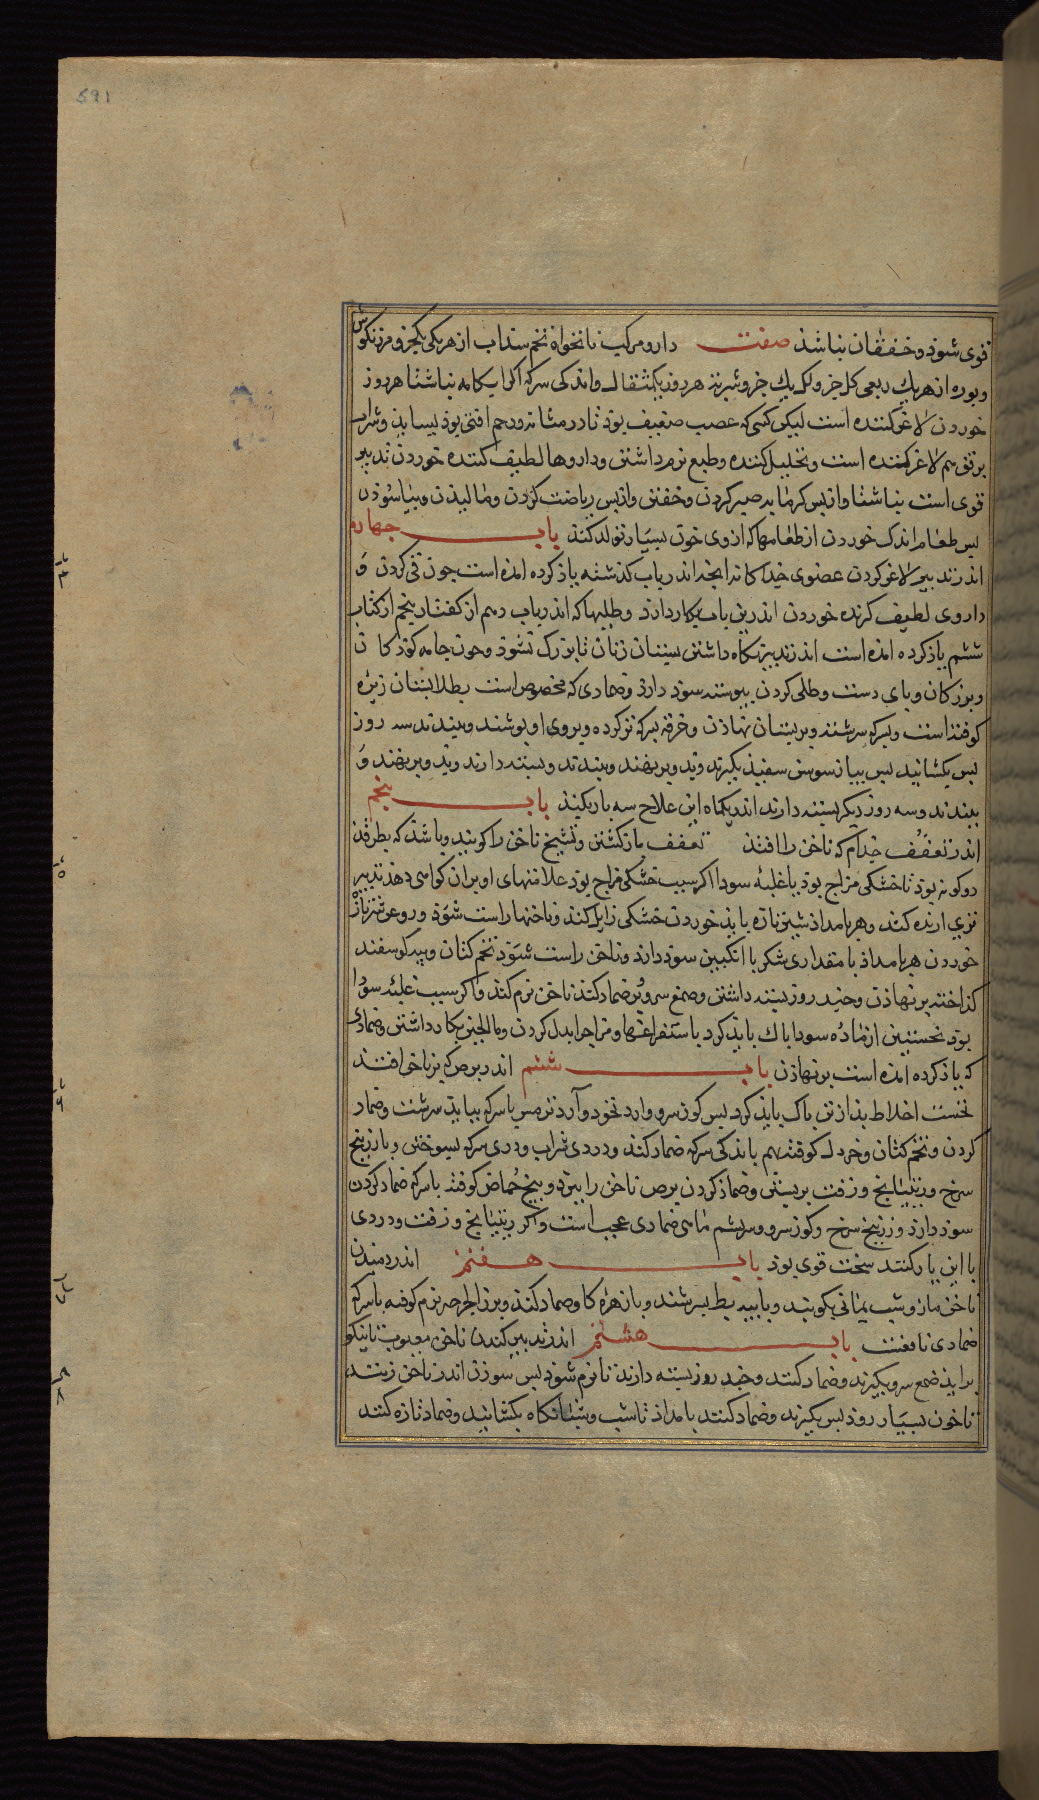 591
قوی شوذ و خفقان نباشذ صفت دارو مرکب نانخواه تخم سذاب از هر یکی یکجزو مرزنکوش
و بوره از هر یک ربعی کل جزو لک یک جزو شربت هر روز یکمثقال و اندکی سرکه اکر آبکامه بناشتا هر روز
خوردن لاغر کننده است لیکن کسی که عصب ضعیف بوذ تا در مثانه و رحم آفتی بوذ و شراب
برقی هم لاغر کننده است و تحلیل کننده و طبع نرم داشتن و داروها لطیف کننده خوردن تدبیر
قوی است بناشتا و از پس کرمابه صبر کردن و خفتن و از پس ریاضت کردن و مالیذن و بیاسوذن
پس طعام اندک خوردن از طعامها که از وی خون بسیار تولد کند باب چهارم
اندر تدبیر لاغر کردن عضوی جداکانه آنچه اندر باب کذشته یاذ کرده امذه است چون قی کردن و
داروی لطیف کننده خوردن اندرین باب بکار دارند و طلیها که اندر باب دهم از کفتار پنجم از کتاب
ششم یاذ کرده امذه است اندر تدبیر نکاه داشتن پستان زنان تا بزرک نشوذ و چون جامه کوذکان
و بزرکان و پای دست و طلی کردن پیوسته سوذ دارذ و ضمادی که مخصوص است بطلا پستان زیره
کوفته است و بسرکه سرشته و بر پستان نهاذن و خرقه بسرکه تر کرده و بر وی او پوشند و ببندند سه روز
پس بکشایند پس پیاز سوسن سفیذ بکیرند و بر نهند و ببندند و بسته دارند و
ببندند و سه روز دیکر بسته دارند اندر یکماه این علاج سه بار بکنند باب پنجم
اندر تعقف جذام که ناخن را افتذ تعقف باز کشتن و تشنج ناخن را کویند و باشذ که بطرقذ
دو کونه بوذ تا خشکی مزاج بوذ یا غلبه سودا اکر سبب خشکی مزاج بوذ علامتهای او بران کواهی دهذ تدبیر
تری ارنده کند و هر بامداذ شیر تازه بایذ خوردن خشکی زایل کند و ناخنها راست شوذ و روغن
خوردن هر بامداذ با مقداری شکر با انکبین سوذ دارذ و ناخن راست شوذ تخم کتان و پیه کوسفند
کذاخته بر نهاذن و چند روز بسته داشتن و صمغ سرو بر ضماد کنند ناخن نرم کند و اکر سبب غلبه سودا
بوذ نخستین از ماده سودا پاک بایذ کرد باستفراغها و مزاج را بدل کردن و ماالجبن بکار داشتن و ضمادی
که یاذ کرده امذه است بر نهاذن باب ششم اندر برص که بر ناخن افتذ
نخست اخلاط بذ از تن پاک بایذ کرد پس کوز سرو و آرد نخوذ و آرد ترمس با سرکه ببایذ سرشت و ضماد
کردن و تخم کتان و خردل کوفته بهم باندکی سرکه ضماد کنند و دردی شراب و دردی سرکه بسوختن و با زرنیخ
سرخ و ریتیانج و زفت بریشتن و ضماد کردن برص ناخن را ببرد و بیخ حماض کوفته با سرکه ضماد کردن
سوذ دارذ و زرنیخ سرخ و کوز سرو و سریشم ماهی ضمادی عجب است و اکر ریتیانج و زفت و دردی
با این یار کنند سخت قوی بوذ باب هفتم اندر دمیدن
ناخن مازو و شب یمانی بکوبند و با پیه بط بسرشند و با زهره کاو ضماد کنند و بزرالجرجر نرم کوفته با سرکه
ضمادی نافعست باب هشتم اندر تدبیر کندن ناخن معیوب تا نیکو
برایذ صمغ سرو بکیرند و ضماد کنند و چند روز بسته دارند تا نرم شوذ پس سوزن اندر ناخن زنند
تا خون بسیار روذ پس بکیرند و ضماد کنند بامداذ تا شب و شبانکاه بکشایند و ضماد تازه کنند